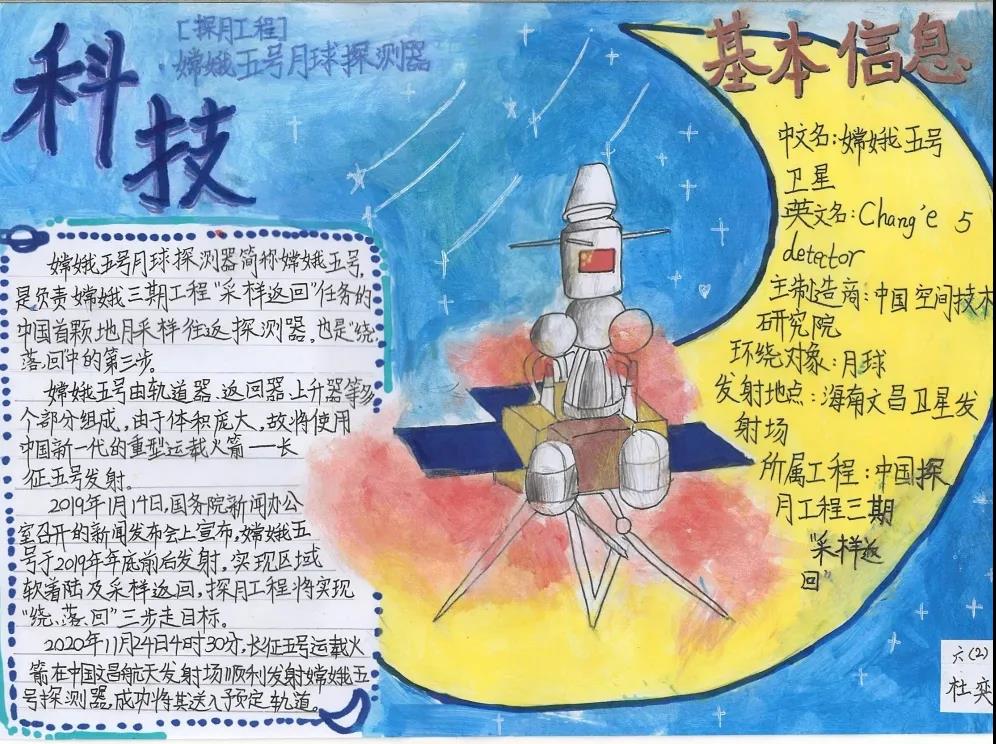 科技
[探月工程]
·嫦娥五号月球探测器
嫦娥五号月球探测器简称嫦娥五号,
是负责嫦娥三期工程“采样返回”任务的
中国首颗地月采样往返探测器。也是“绕、
落、回”中的第三步。
嫦娥五号由轨道器、返回器、上升器等多
个部分组成,由于体积庞大,故将使用
中国新一代的重型运载火箭——长
征五号发射。
2019年1月14日,国务院新闻办公
室召开的新闻发布会上宣布,嫦娥五
号于2019年年底前后发射,实现区域
软着陆及采样返回,探月工程将实现
“绕、落、回”三步走目标。
2020年11月24日4时30分,长征五号运载火
箭在中国文昌航天发射场顺利发射嫦娥五
号探测器,成功将其送入予定轨道。
基本信息
中文名:嫦娥五号
卫星
英文名:Chang'e 5
detector
主制造商:中国空间技术
研究院
环绕对象:月球
发射地点:海南文昌卫星发
射场
所属工程:中国探
月工程三期
“采样返
回”
六(2)
杜奕